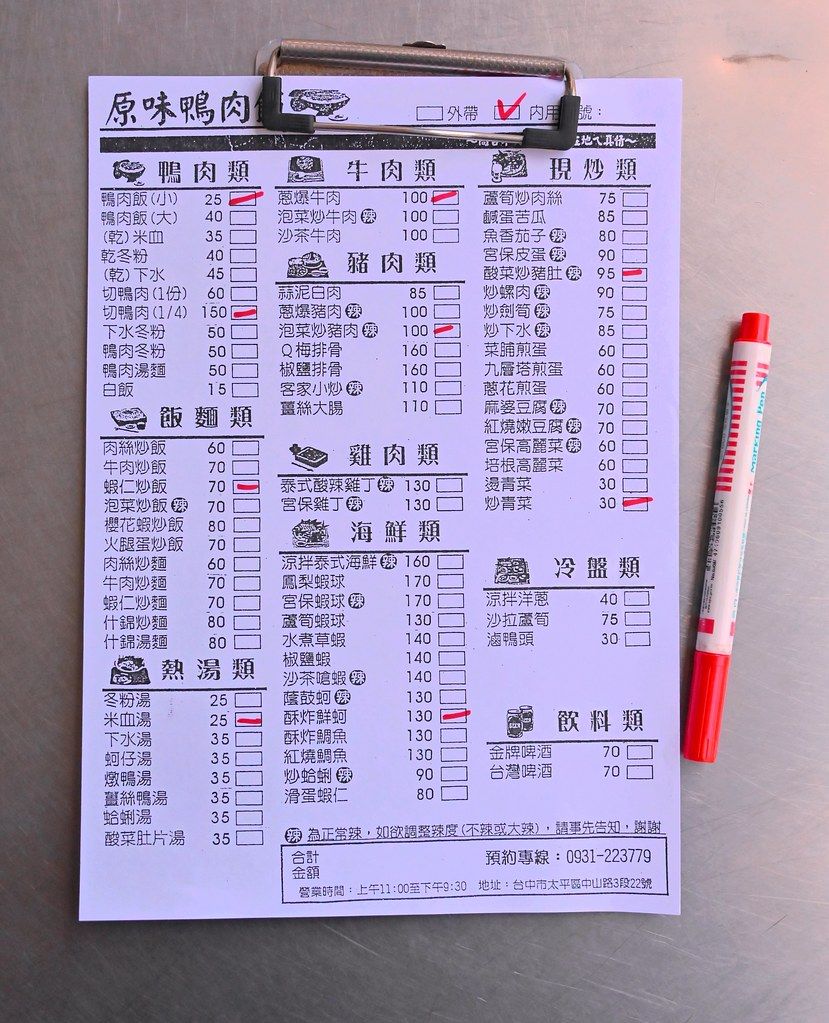 原味鴨肉
外帶 內用 號：
在地ㄟ真情～
鴨肉類
鴨肉飯(小) 25
鴨肉飯(大) 40
(乾)米血 35
乾冬粉 40
(乾)下水 45
切鴨肉(1份) 60
切鴨肉(1/4) 150
下水冬粉 50
鴨肉冬粉 50
鴨肉湯麵 50
白飯 15
飯麵類
肉絲炒飯 60
牛肉炒飯 70
蝦仁炒飯 70
泡菜炒飯 辣 70
櫻花蝦炒飯 80
火腿蛋炒飯 70
肉絲炒麵 60
牛肉炒麵 70
蝦仁炒麵 70
什錦炒麵 80
什錦湯麵 80
熱湯類
冬粉湯 25
米血湯 25
下水湯 35
蚵仔湯 35
燉鴨湯 35
薑絲鴨湯 35
蛤蜊湯 35
酸菜肚片湯 35
牛肉類
蔥爆牛肉 100
泡菜炒牛肉 辣 100
沙茶牛肉 100
豬肉類
蒜泥白肉 85
蔥爆豬肉 辣 100
泡菜炒豬肉 辣 100
Q梅排骨 160
椒鹽排骨 160
客家小炒 辣 110
薑絲大腸 110
雞肉類
泰式酸辣雞丁 辣 130
宮保雞丁 辣 130
海鮮類
涼拌泰式海鮮 辣 160
鳳梨蝦球 170
宮保蝦球 辣 170
蘆筍蝦球 130
水煮草蝦 140
椒鹽蝦 140
沙茶嗆蝦 辣 140
蔭鼓蚵 辣 130
酥炸鮮蚵 130
酥炸鯛魚 130
紅燒鯛魚 130
炒蛤蜊 辣 90
滑蛋蝦仁 80
現炒類
蘆筍炒肉絲 75
鹹蛋苦瓜 85
魚香茄子 辣 80
宮保皮蛋 辣 90
酸菜炒豬肚 辣 95
炒螺肉 辣 90
炒劍筍 辣 75
炒下水 辣 85
菜脯煎蛋 60
九層塔煎蛋 60
蔥花煎蛋 60
麻婆豆腐 辣 70
紅燒嫩豆腐 辣 70
宮保高麗菜 辣 60
培根高麗菜 60
燙青菜 30
炒青菜 30
冷盤類
涼拌洋蔥 40
沙拉蘆筍 75
滷鴨頭 30
飲料類
金牌啤酒 70
台灣啤酒 70
辣 為正常辣，如欲調整辣度(不辣或大辣)，請事先告知，謝謝
合計
金額
預約專線：0931-223779
營業時間：上午11:00至下午9:30 地址：台中市太平區中山路3段22號
Marking Pen